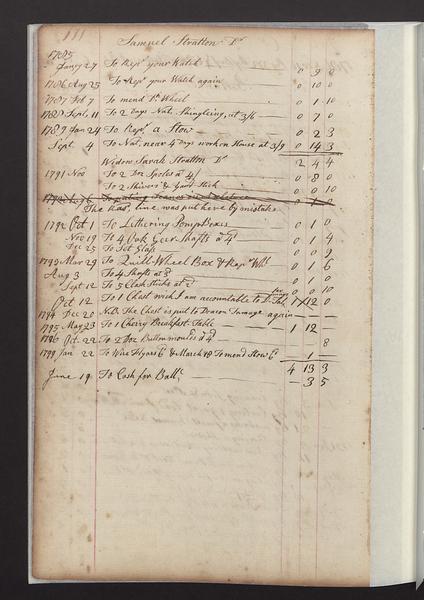 111
Samuel Stratton Dr
1785
Janry 27 To Repg your Watch 0 9 0
1786 Aug 25 To Repg your Watch again 0 10 0
1787 Feb 7 To mend Do Wheel 0 1 10
Sept. 11 To 2 days Nat. Shingleing, at 3/6 0 7 0
1789 Jan 24 To Repg a Slow 0 2 3
Sept. 4 To Nat. near 4 days work on House at 3/9 0 14 3
Widow Sarah Stratton Dr 2 4 4
1791 Nov To 2 Doz Spoles a 4/ 0 8 0
To 2 Shivers & Yard Stick 0 0 10
The last line was put here by mistake
1792 Oct 1 To 0 1 0
Nov 19 To 4 Oak Geer Shafts a 4d 0 1 4
Dec 25 To Set Glass 0 0 9
1793 Mar 29 To Quill-Wheel Box & Repg Whl 0 1 6
Aug 3 To 4 Shafts at 0 1
Sept 12 To 5 Cloth Sticks at 2d 0 0 10
Oct 12 To 1 Chest wich I am accountable to D. 1 12 0
1794 Dec 20 NB. The Chest is put to Deacon Savage again
1795 May 23 To 1 Cherry Breakfast Table 1 12
1796 Oct. 22 To 2 Doz Button moulds a 4d 8
1799 Jan 22 To Wire Flyars 6d & March 18 To mend Slow 6d 1
4 13 3
June 19 To Cash for Balle 3 5